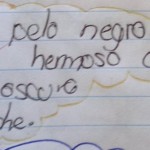 pelo negro
hermoso
oscuro
he.